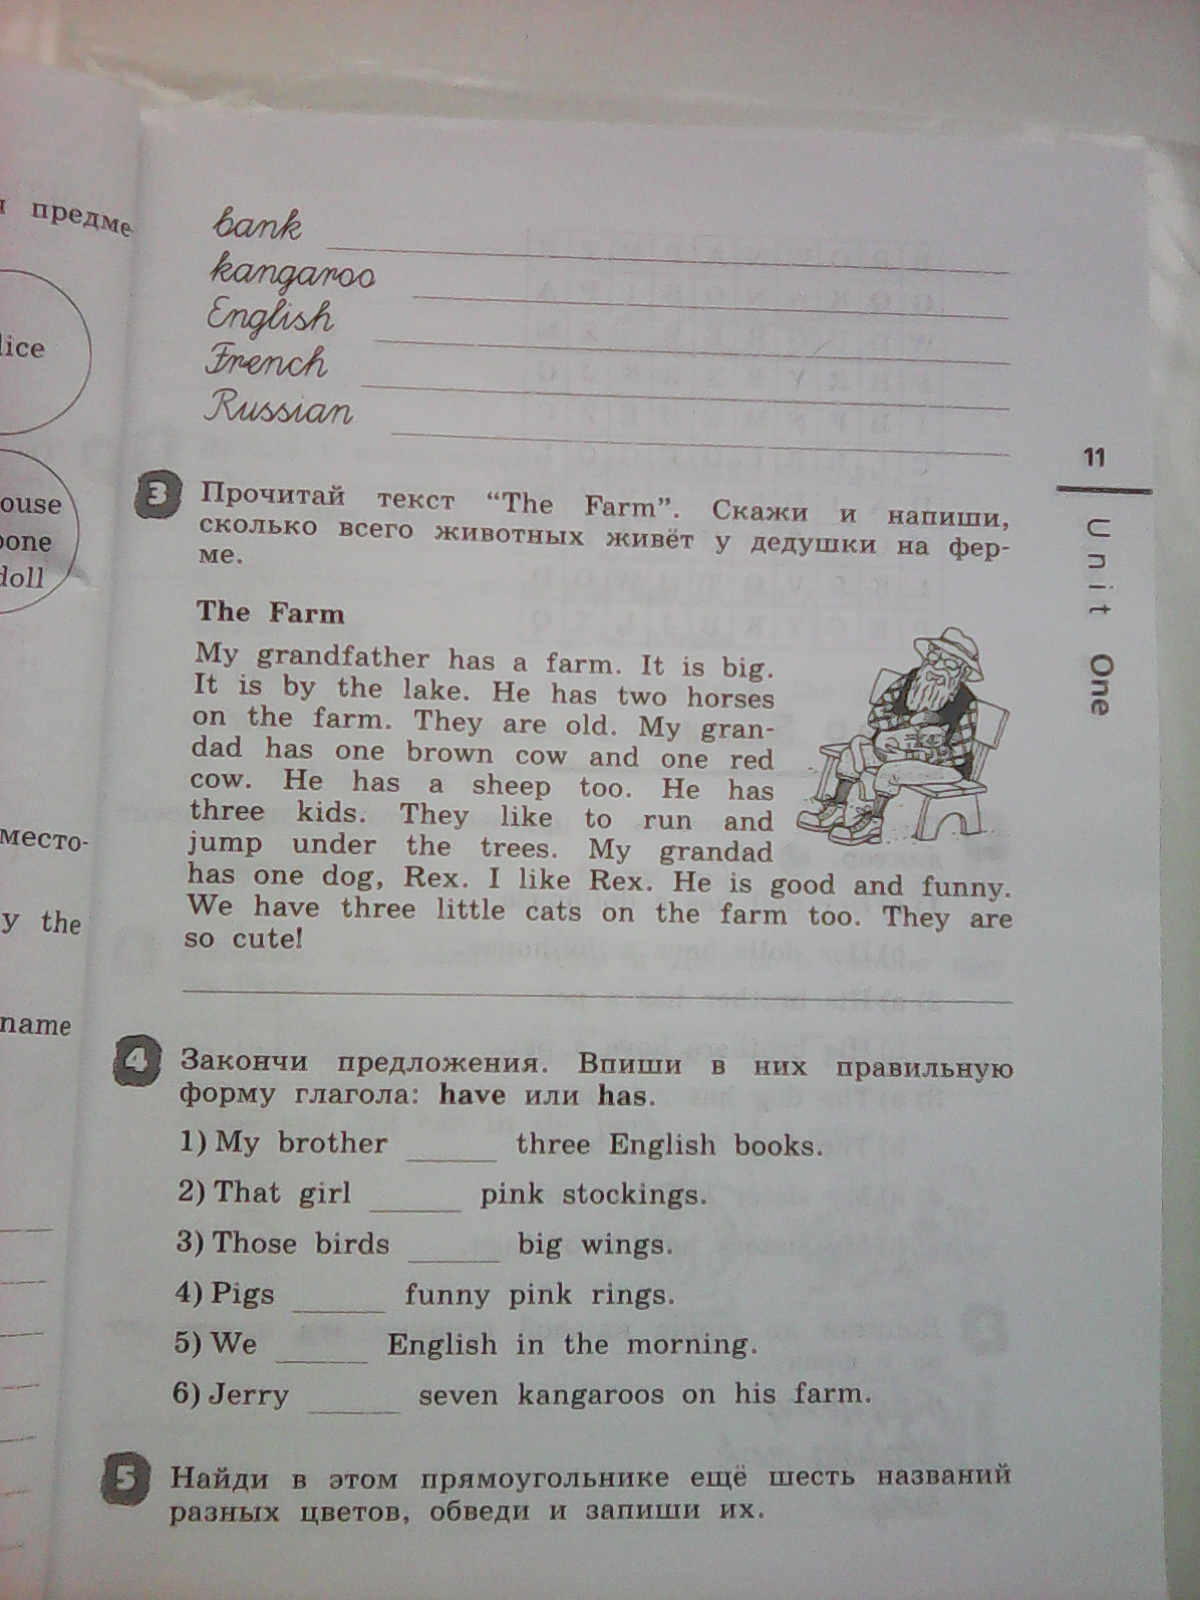 предме-
lice
ouse
bone
doll
место-
y the
name
bank
kangaroo
English
French
Russian
11
Unit One
3 Прочитай текст “The Farm”. Скажи и напиши,
сколько всего животных живёт у дедушки на фер-
ме.
The Farm
My grandfather has a farm. It is big.
It is by the lake. He has two horses
on the farm. They are old. My gran-
dad has one brown cow and one red
cow. He has a sheep too. He has
three kids. They like to run and
jump under the trees. My grandad
has one dog, Rex. I like Rex. He is good and funny.
We have three little cats on the farm too. They are
so cute!
4 Закончи предложения. Впиши в них правильную
форму глагола: have или has.
1) My brother _____ three English books.
2) That girl _____ pink stockings.
3) Those birds _____ big wings.
4) Pigs _____ funny pink rings.
5) We _____ English in the morning.
6) Jerry _____ seven kangaroos on his farm.
5 Найди в этом прямоугольнике ещё шесть названий
разных цветов, обведи и запиши их.